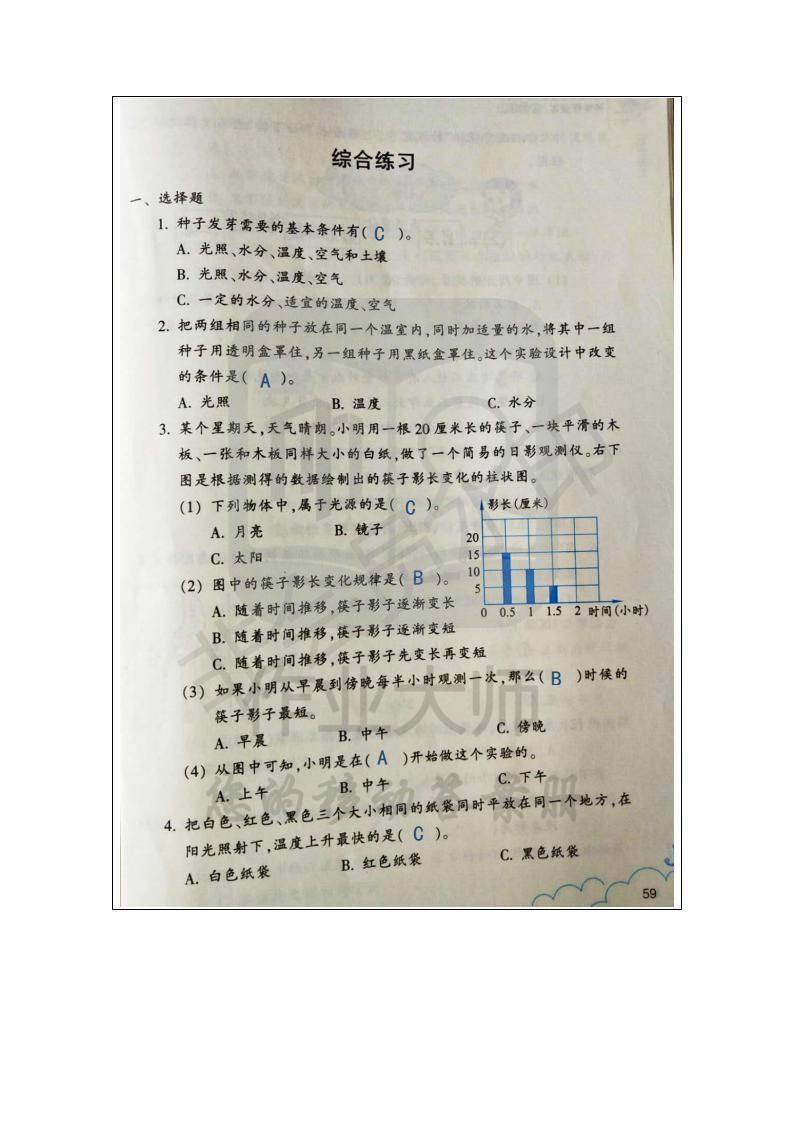 综合练习
一、选择题
1. 种子发芽需要的基本条件有( C )。
A. 光照、水分、温度、空气和土壤
B. 光照、水分、温度、空气
C. 一定的水分、适宜的温度、空气
2. 把两组相同的种子放在同一个温室内,同时加适量的水,将其中一组
种子用透明盒罩住,另一组种子用黑纸盒罩住。这个实验设计中改变
的条件是( A )。
A. 光照 B. 温度 C. 水分
3. 某个星期天,天气晴朗。小明用一根20厘米长的筷子、一块平滑的木
板、一张和木板同样大小的白纸,做了一个简易的日影观测仪。右下
图是根据测得的数据绘制出的筷子影长变化的柱状图。
(1) 下列物体中,属于光源的是( C )。
A. 月亮 B. 镜子
C. 太阳
(2) 图中的筷子影长变化规律是( B )。
A. 随着时间推移,筷子影子逐渐变长
B. 随着时间推移,筷子影子逐渐变短
C. 随着时间推移,筷子影子先变长再变短
影长(厘米)
20
15
10
5
0 0.5 1 1.5 2 时间(小时)
(3) 如果小明从早晨到傍晚每半小时观测一次,那么( B )时候的
筷子影子最短。
A. 早晨 B. 中午 C. 傍晚
(4) 从图中可知,小明是在( A )开始做这个实验的。
A. 上午 B. 中午 C. 下午
4. 把白色、红色、黑色三个大小相同的纸袋同时平放在同一个地方,在
阳光照射下,温度上升最快的是( C )。
A. 白色纸袋 B. 红色纸袋 C. 黑色纸袋
59
作业大师